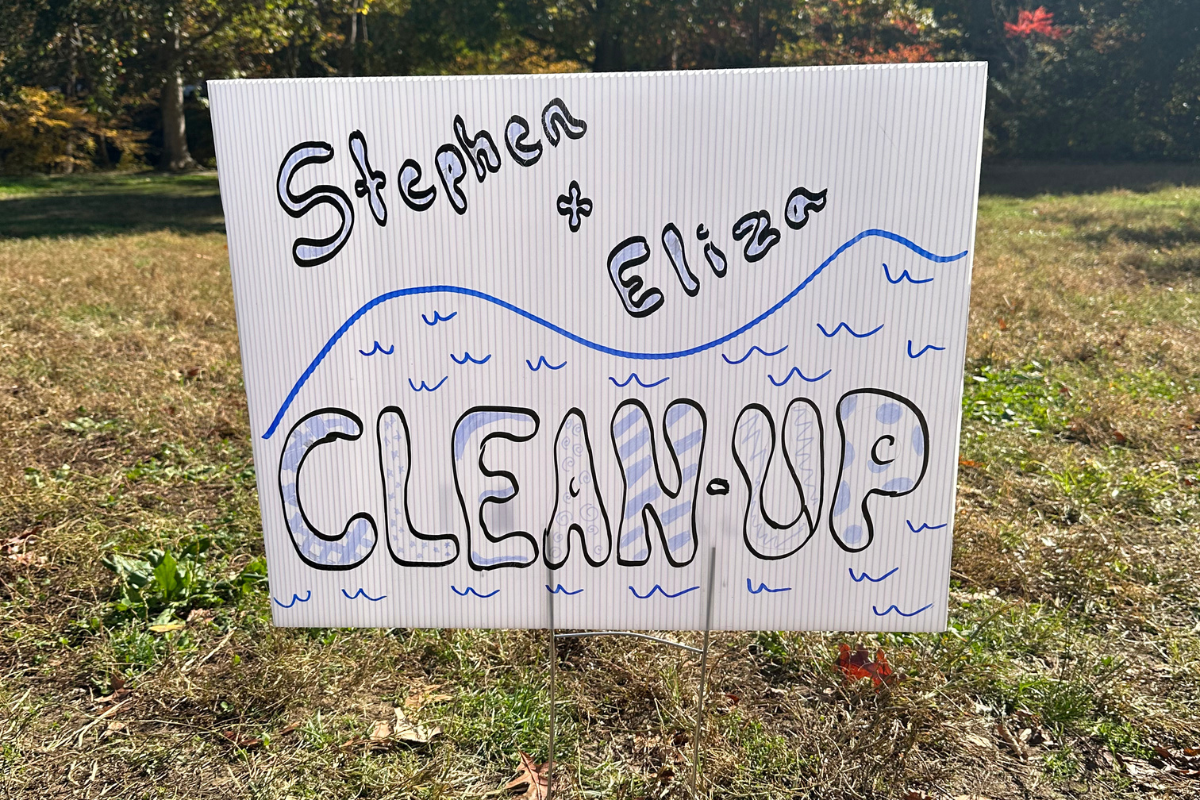 Stephen
+
Eliza
CLEAN-UP